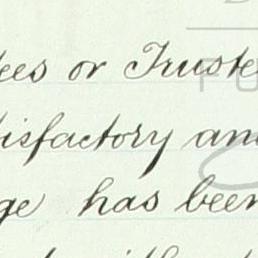 ees or Truste
tisfactory and
ge has been